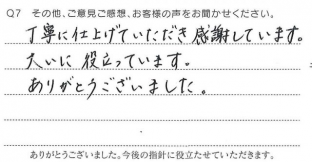 Q7 その他、ご意見ご感想、お客様の声をお聞かせください。
丁寧に仕上げていただき感謝しています。
大いに役立っています。
ありがとうございました。
ありがとうございました。今後の指針に役立たせていただきます。